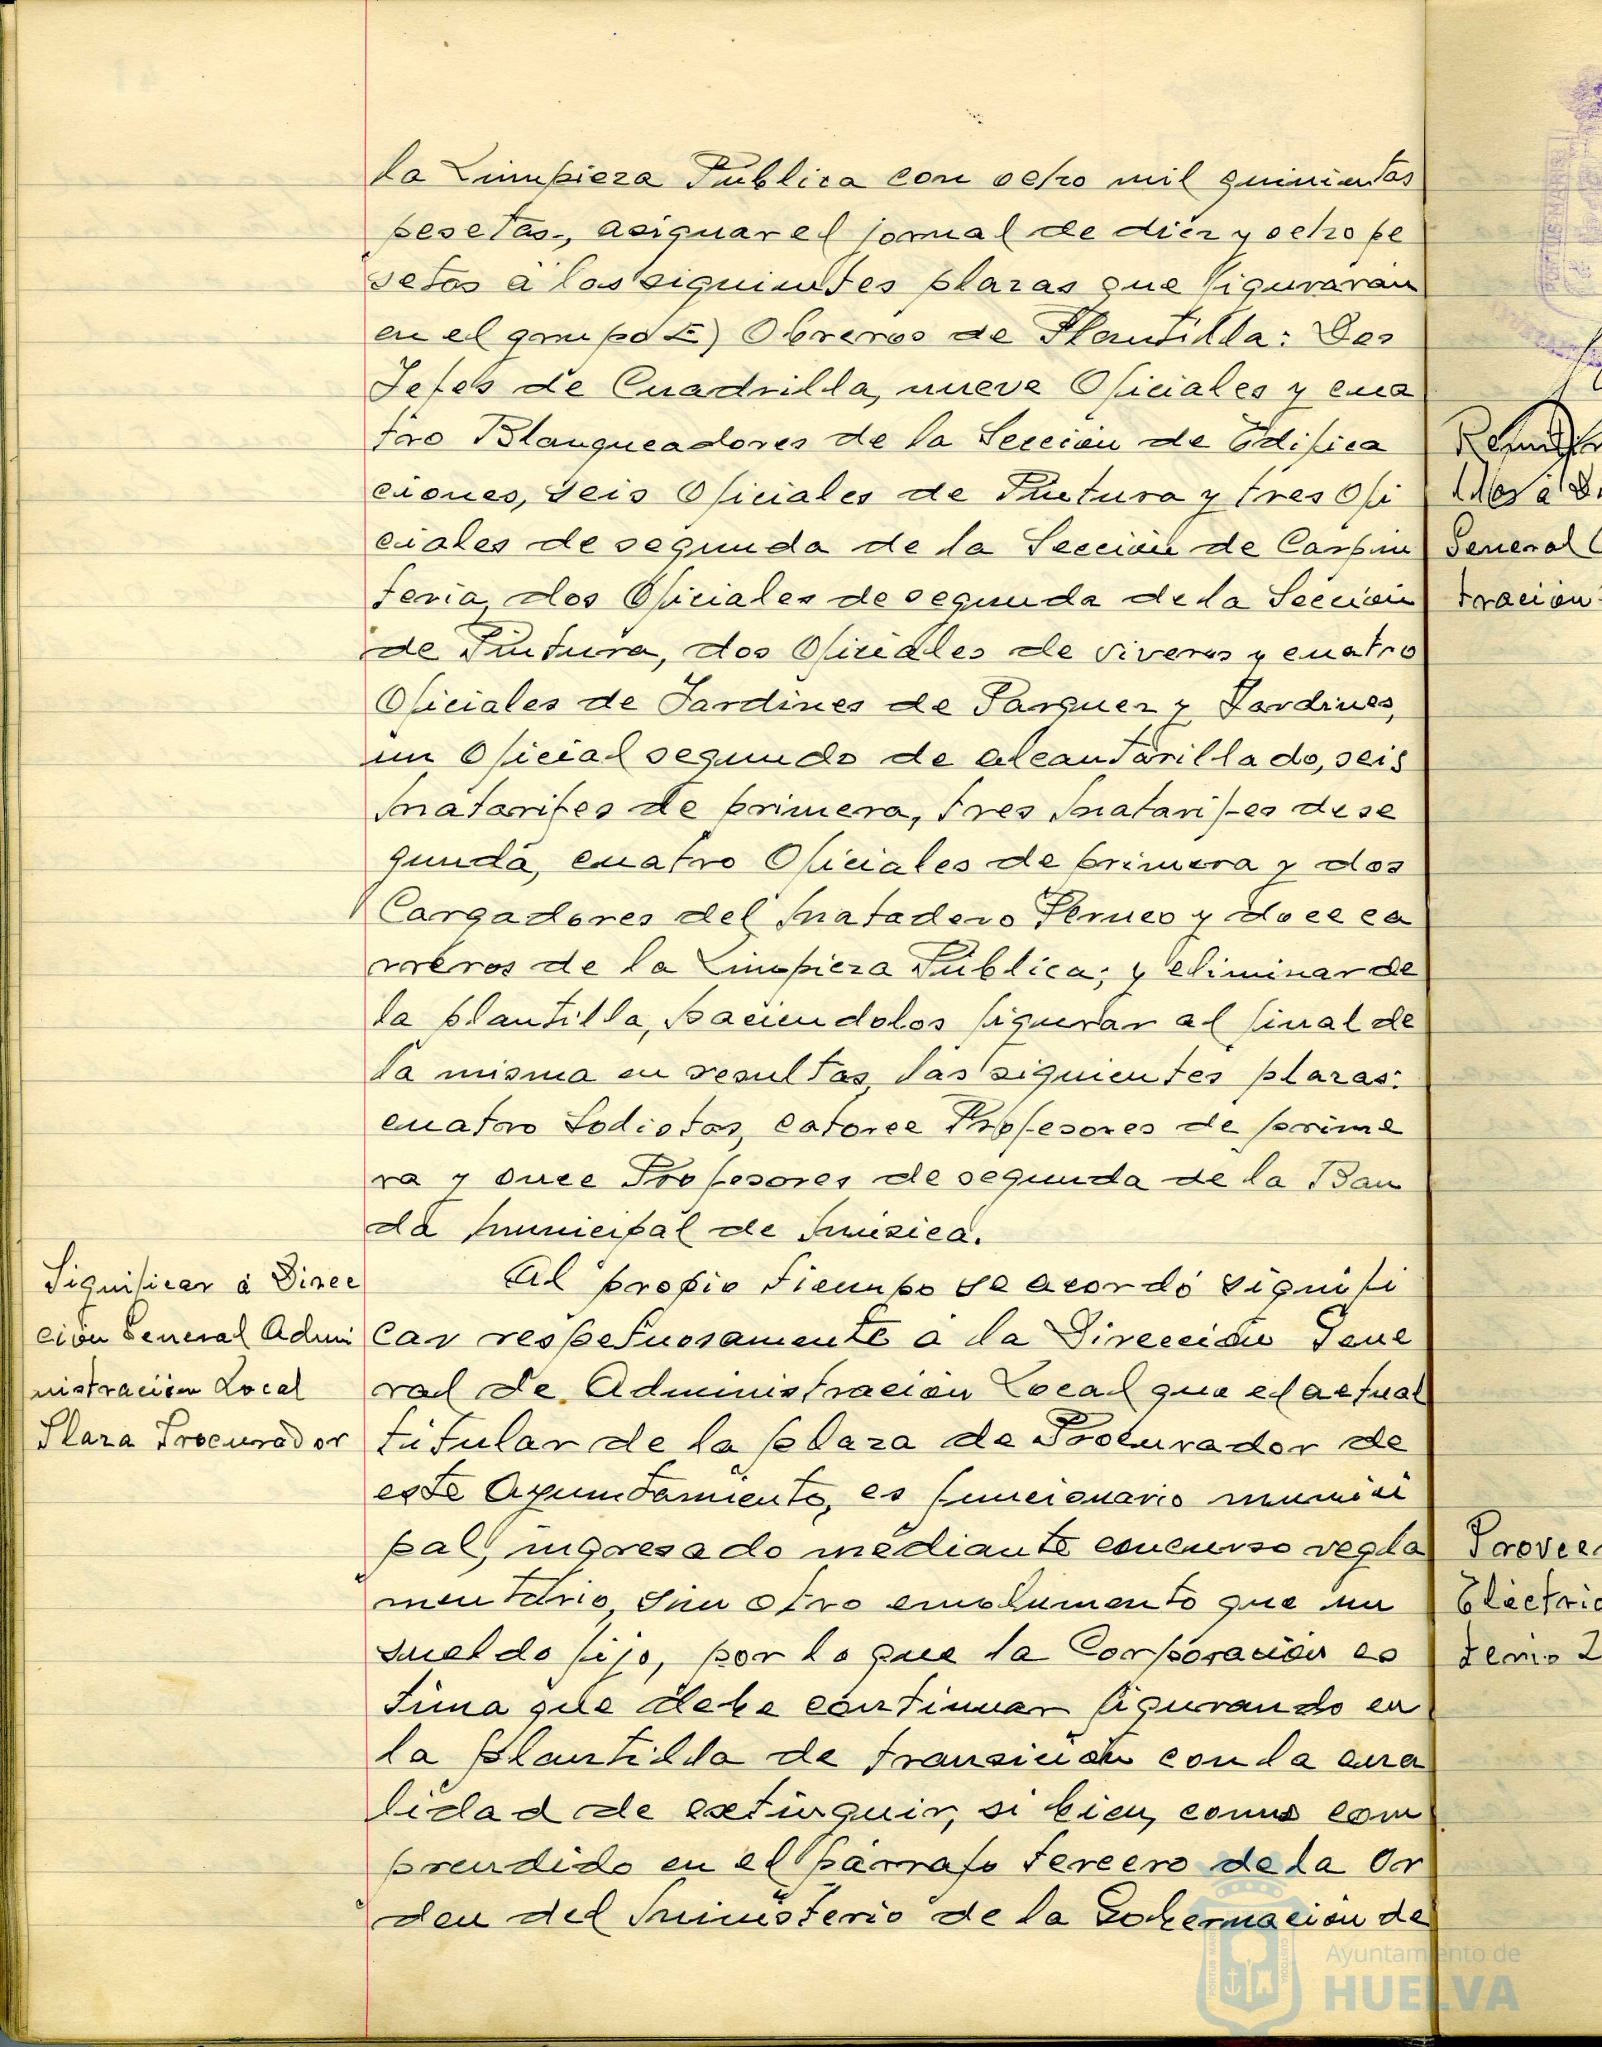 la Limpieza Pública con ocho mil quinientas
pesetas, asignar el jornal de diez y ocho pe
setas á las siguientes plazas que figurarán
en el grupo E) Obreros de Plantilla: Dos
Jefes de Cuadrilla, nueve Oficiales y cua
tro Blanqueadores de la Sección de Edifica
ciones, seis Oficiales de Pintura y tres Ofi
ciales de segunda de la Sección de Carpin
tería, dos Oficiales de segunda de la Sección
de Pintura, dos Oficiales de viveros y cuatro
Oficiales de Jardines de Parques y Jardines,
un Oficial segundo de alcantarillado, seis
Matarifes de primera, tres Matarifes de se
gunda, cuatro Oficiales de primera y dos
Cargadores del Matadero Público y doce ca
rreros de la Limpieza Pública; y eliminar de
la plantilla, haciendolos figurar al final de
la misma en resultas, las siguientes plazas:
cuatro Sodistas, catorce Profesores de prime
ra y once Profesores de segunda de la Ban
da Municipal de Música.
Significar á Direc
ción General Admi
nistración Local
Plaza Procurador
Al propio tiempo se acordó signifi
car respetuosamente á la Dirección Gene
ral de Administración Local que el actual
titular de la plaza de Procurador de
este Ayuntamiento, es funcionario munici
pal, ingresado mediante concurso regla
mentario, sin otro emolumento que un
sueldo fijo, por lo que la Corporación es
tima que debe continuar figurando en
la plantilla de transición con la cua
lidad de extinguir, si bien, como com
prendido en el párrafo tercero de la Or
den del Ministerio de la Gobernación de
General
tración
Provee
Eléctric
terio 2
Ayuntamiento de
HUELVA